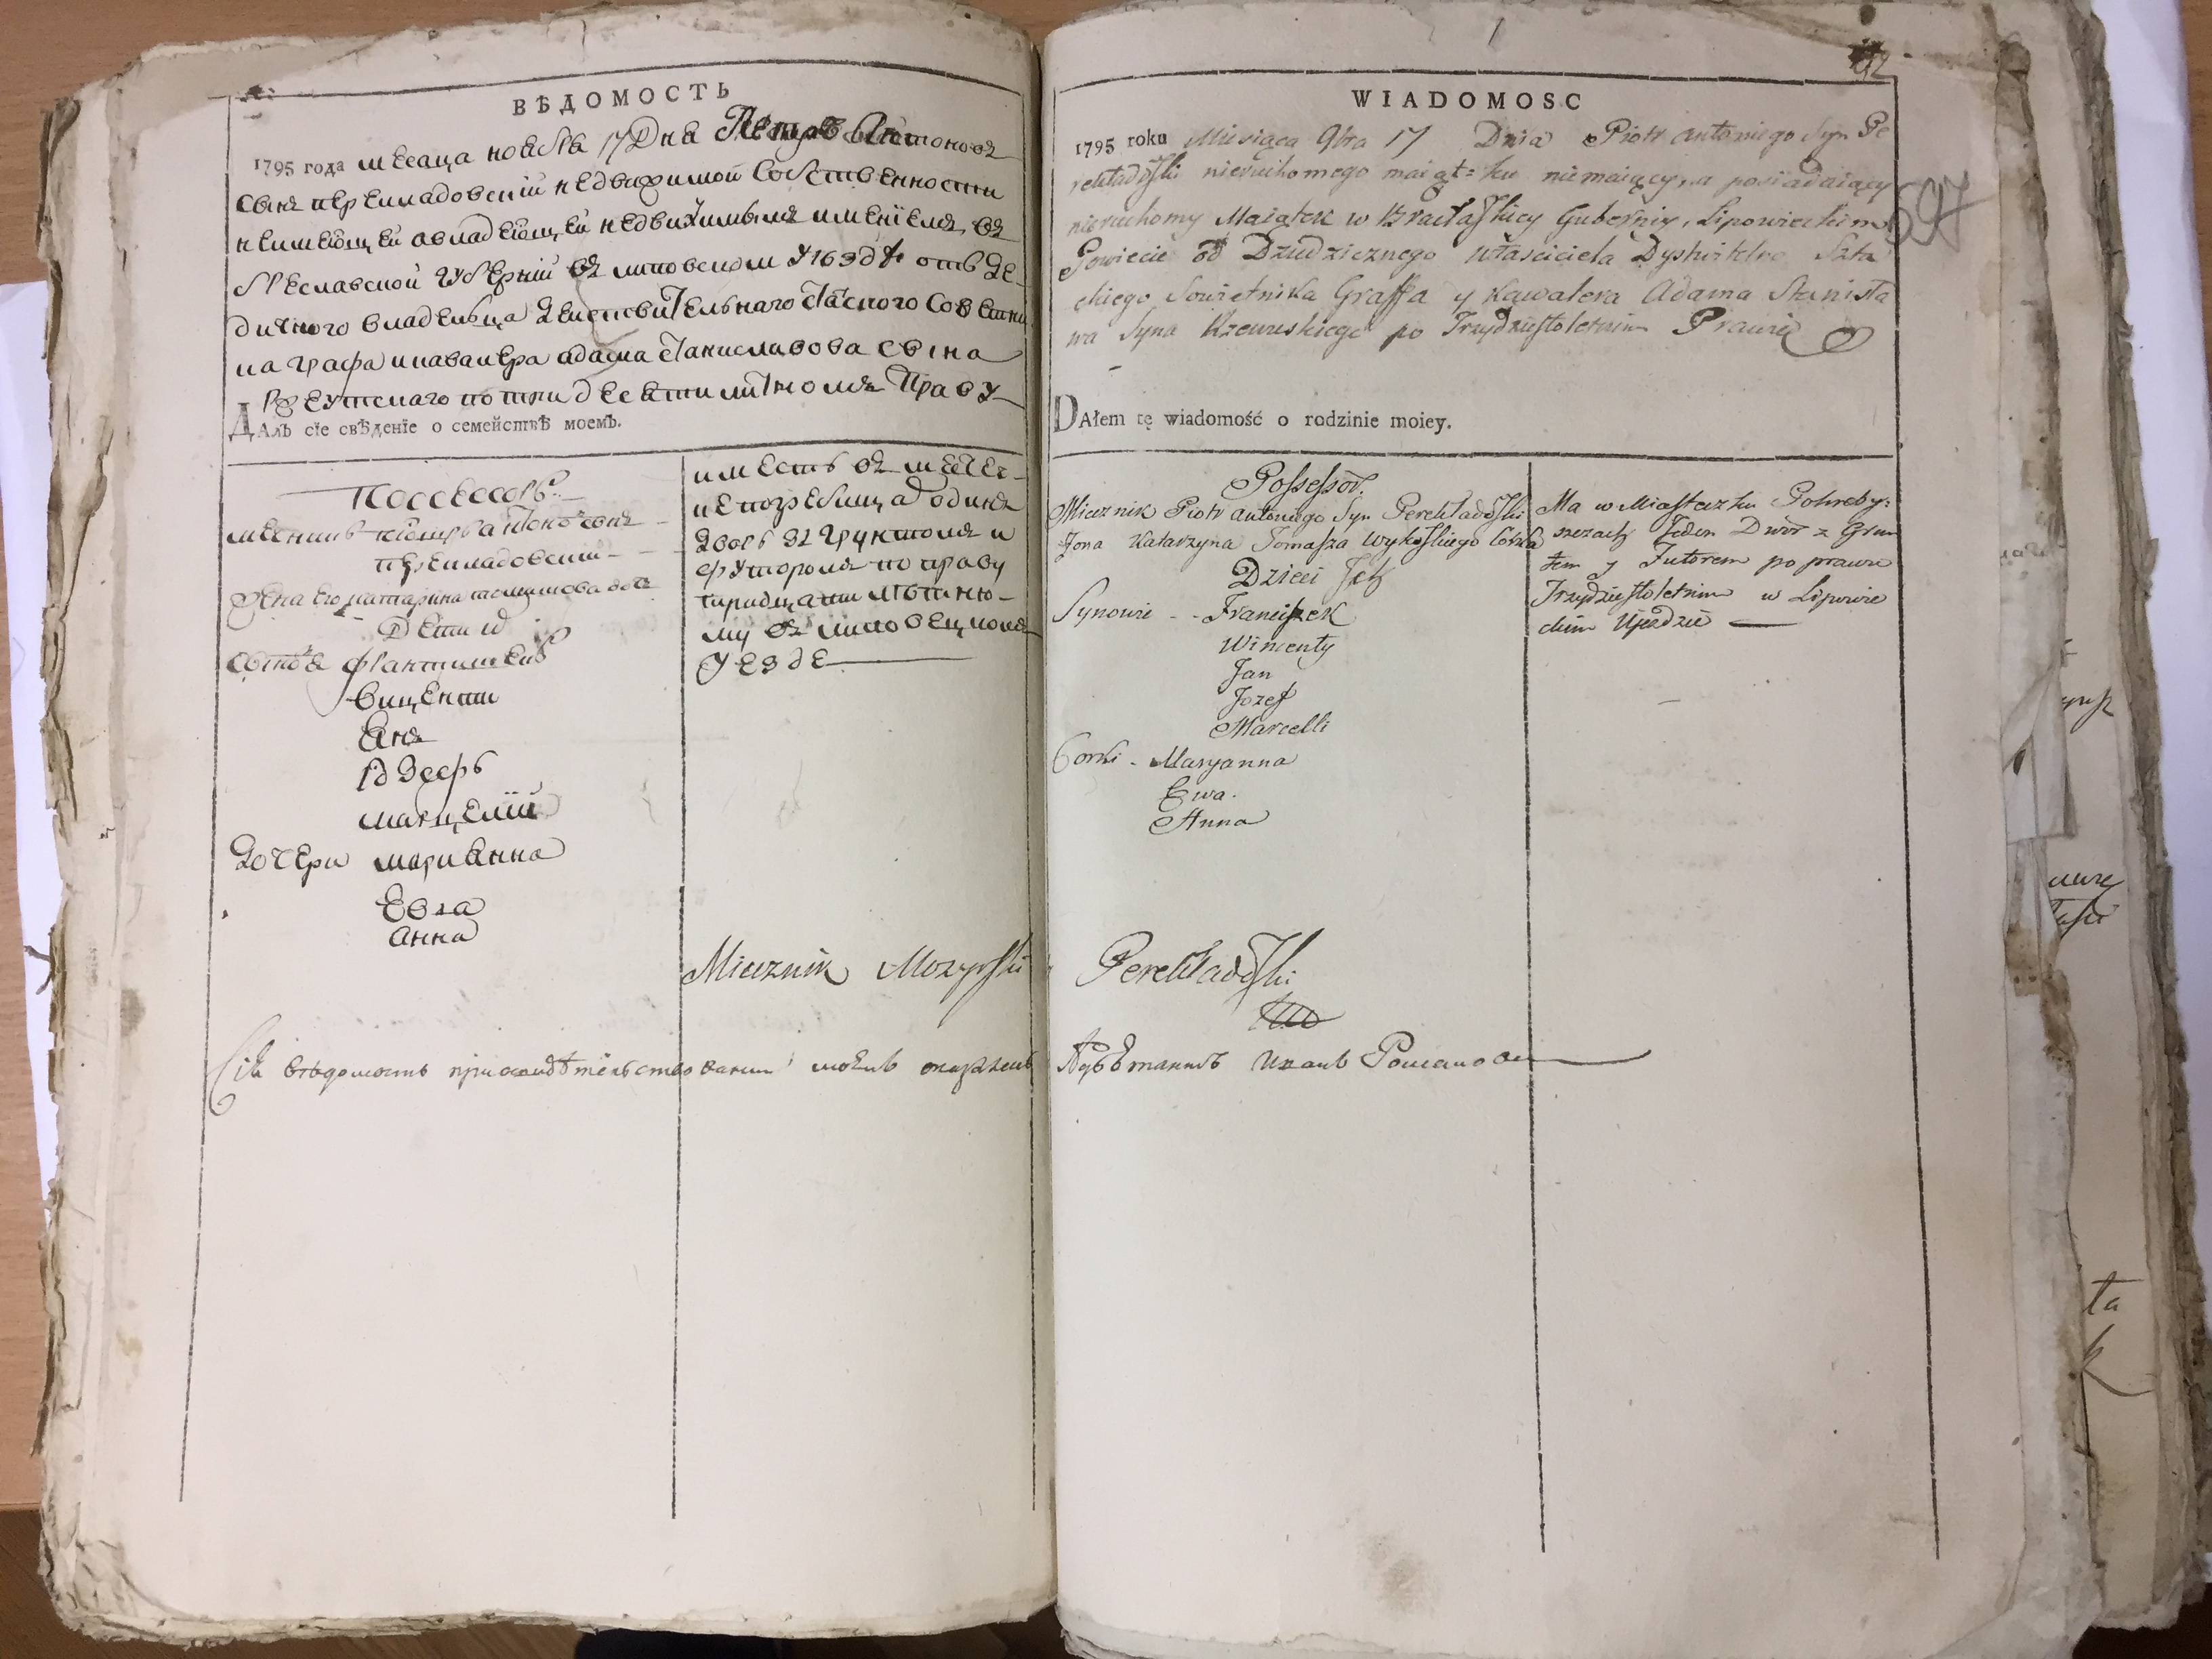 ВѢДОМОСТЬ
1795 года месаца ноебра 17 Дна Петръ Антоновъ
сынъ перекладовский недвижимой собственности
неимеющей авладеющей недвижимымъ имениемъ въ
браславской губернии въ липовецком уезде отъ Де-
дичного владельца Деиствительнаго Таеного Советни
ка графа икавалера адама Станиславова сына
Ржеуцкаго по тридесятилитномъ Праву
ДАлъ сїе свѣденїе о семействѣ моемъ.
Поссесоръ
мечникъ Петръ антоно: сынъ
перекладовский
Жена Его катарина томашова дочь
Дети ихъ
сынове францишекъ
виценти
Янъ
Юзефъ
марцелий
Дочери марианна
Ева
анна
иместь въ местеч-
ке погребища одинъ
Дворъ зъ грунтомъ и
футоромъ по праву
тридцати летню-
му въ липовецкомъ
уезде
Miecznik Mozyrski
Сiю вѣдомость присвидѣтельствовании моемъ
Иванъ Романов
WIADOMOSC
92
597
1795 roku Miesiąca 9bra 17 Dnia Piotr Antoniego Syn Pe
rekładowski nieruchomego maiąt=ku niemaiący, a posiadaiący
nieruchomy Maiątek w Bracławskiey Gubernii, Lipowieckim
Powiecie od Dziedzicznego właściciela Dystwitelno Szta
ckiego Sowietnika Graffa y Kawalera Adama Stanisła
wa Syna Rzewuskiego po Trzydziestoletnim Prawie
DAłem tę wiadomość o rodzinie moiey.
Possessor.
Miecznik Piotr Antoniego Syn Perekładowski
Żona Katarzyna Tomasza Wykowskiego Córka
Dzieci Ich
Synowie - - Franciszek
Wincenty
Jan
Jozef
Marcelli
Corki - Maryanna
Ewa.
Anna
Ma w Miasteczku Pohreby:
szczach Jeden Dwor z Grun
tem y Futorem po prawu
Trzydziestoletnim w Lipowie
ckim Ujezdzie
Perekładowski